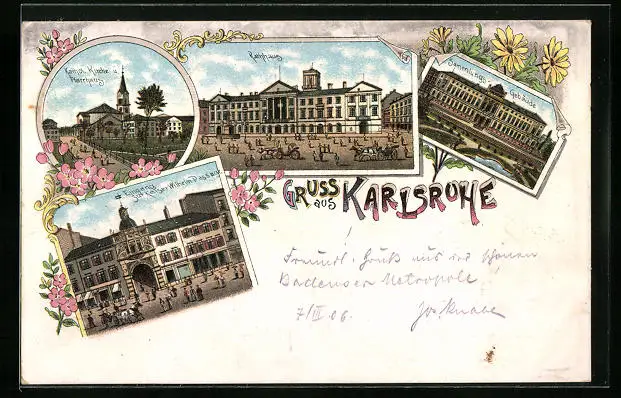 Kathol. Kirche u.
Pfarrhaus
Rathhaus
Sammlungs-Gebäude
Eingang
zur Kaiser Wilhelm Passage
GRUSS
aus
KARLSRUHE
Freundl. Gruß aus der schönen
Badenser Metropole!
7/III 06.